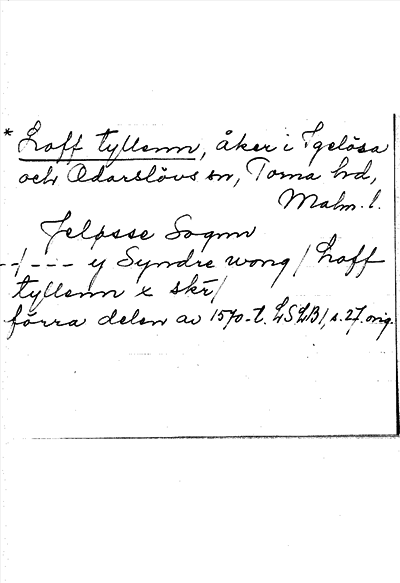 * Loff tyllenn, åker i Igelösa
och Odarslövs sn, Torna hd,
Malm. l.
Jeløsse Sognn
--/--- y Syndre wong / Loff
tyllenn x skr/
förra delen av 1570-t. LSLB1, s. 27. orig.